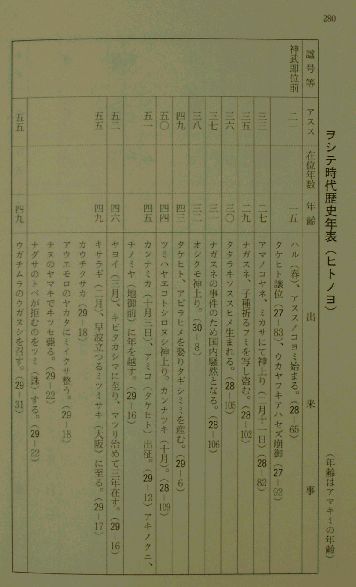 280
ヲシテ時代歴史年表(ヒトノヨ)
(年齢はアマキミの年齢)
諡号等 アスス 在位年数 年齢 出来事
神武即位前 二一 一五 ハル(春)、アススノコヨミ始まる。(28-65)
タケヒト譲位(27-83)、ウカヤフキアハセズ崩御(27-92)
三三 二七 アマノコヤネ、ミカサにて神上り(一月十一日)(28-83)
三五 二九 ナガスネ、子種祈るフミを写し盗む。(28-102)
三六 三〇 タタラヰソススヒメ生まれる。(28-105)
三七 三一 ナガスネの事件のため国内騒然となる。(28-106)
三八 三二 オシクモ神上り。(30-8)
四九 四三 タケヒト、アビラヒメを娶りタギシミミを産む。(29-6)
五〇 四四 ツミハヤエコトシロヌシ神上り、カンナツキ(十月)。(28-109)
五一 四五 カンナミカ(十月三日)、アミコ(タケヒト)出征。(29-12)アキノクニ、
チノミヤ(地御前)に年を越す。(29-16)
五二 四六 ヤヨイ(三月)、キビタカシマに至り、マツリ治めて三年在す。(29-16)
五五 四九 キサラギ(二月)、早波立つるミツミサキ(大阪)に至る。(29-17)
カウチクサカ(29-18)
アウエモロのヤカタにミイクサ整う。(29-18)
チヌのヤマキでキツセ薨る。(29-22)
ナグサのトベが拒むのをツミ(誅)する。(29-22)
五五 四九 ウガチムラのウガヌシを召す。(29-31)